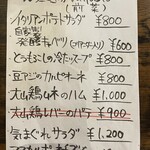 (前菜)
イタリアンポテトサラダ ¥800
自家製
発酵キャベツ ¥600
とうもろこしの冷たいスープ ¥800
豆アジのカルピオーネ ¥800
大山鶏ムネのハム ¥1.000
大山鶏レバーのパテ ¥900
気まぐれサラダ ¥1.200